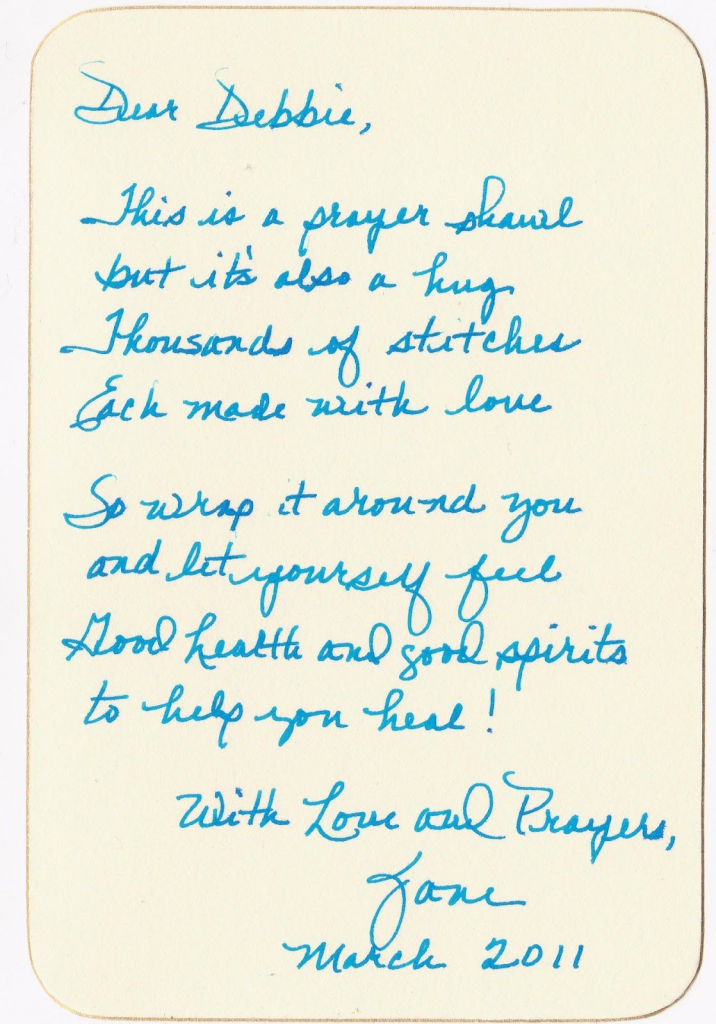 Dear Debbie,
This is a prayer shawl
but it's also a hug
Thousands of stitches
Each made with love
So wrap it around you
and let yourself feel
Good health and good spirits
to help you heal!
With Love and Prayers,
Jane
March 2011